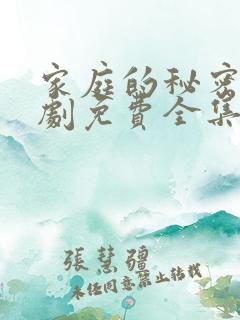 家庭的秘密
劇免費全集
張慧疆
未任同意禁止转载